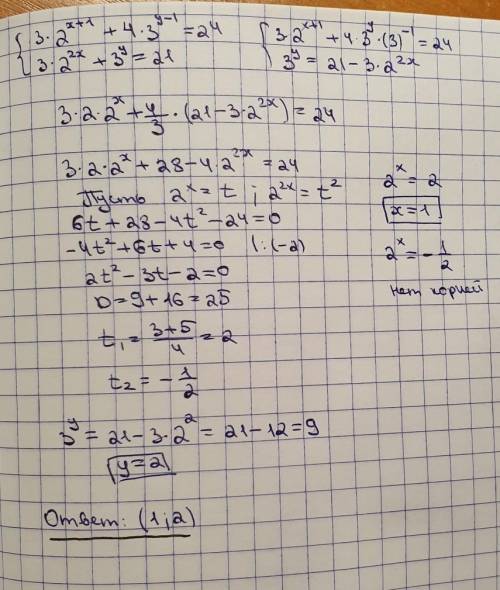 { 3·2^{x+1} + 4·3^{y-1} = 24
{ 3·2^{2x} + 3^y = 21
{ 3·2^{x+1} + 4·3^y·(3)^{-1} = 24
{ 3^y = 21 - 3·2^{2x}
3·2·2^x + 4/3·(21 - 3·2^{2x}) = 24
3·2·2^x + 28 - 4·2^{2x} = 24
Пусть 2^x = t ; 2^{2x} = t^2
6t + 28 - 4t^2 - 24 = 0
-4t^2 + 6t + 4 = 0 | : (-2)
2t^2 - 3t - 2 = 0
D = 9 + 16 = 25
t_1 = (3+5)/4 = 2
t_2 = -1/2
2^x = 2
x = 1
2^x = -1/2
нет корней
3^y = 21 - 3·2^2 = 21 - 12 = 9
y = 2
Ответ: (1;2)